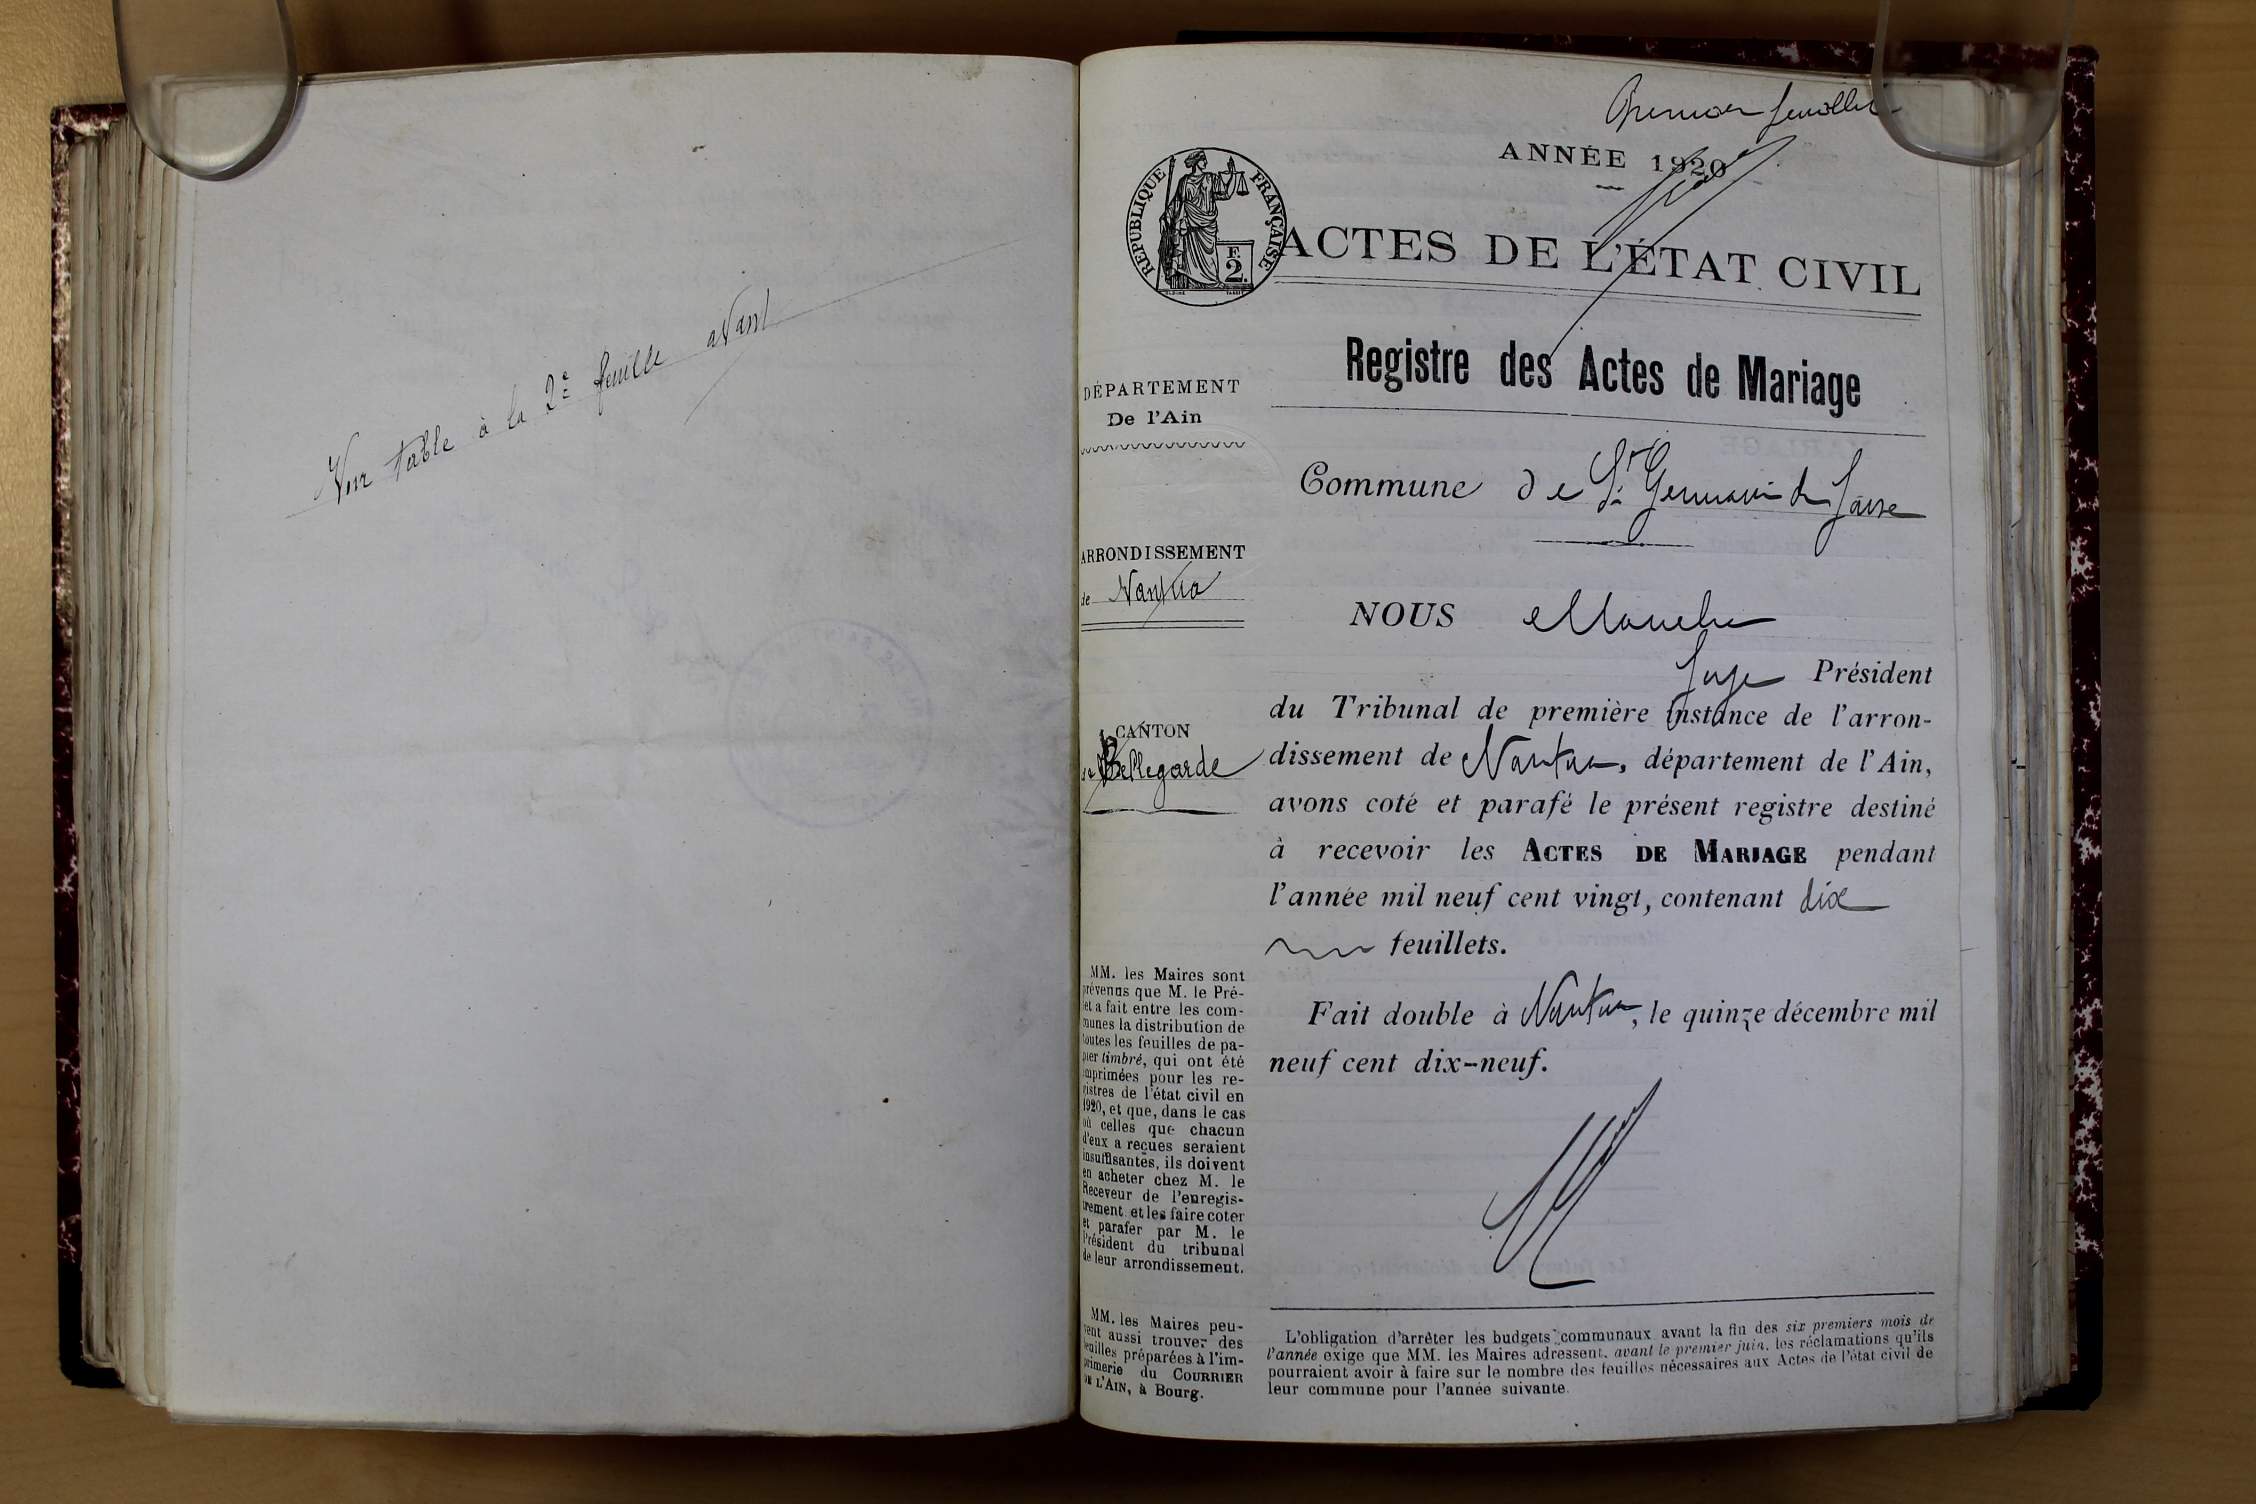 Voir table à la 2e feuille avant
Premier feuillet
ANNÉE 1920
RÉPUBLIQUE FRANÇAISE
F.
2.
ACTES DE L'ÉTAT CIVIL
Registre des Actes de Mariage
DÉPARTEMENT
De l'Ain
Commune de St Germain de Joux
ARRONDISSEMENT
de Nantua
NOUS
Juge Président
du Tribunal de première instance de l'arron-
dissement de Nantua, département de l'Ain,
avons coté et parafé le présent registre destiné
à recevoir les ACTES DE MARIAGE pendant
l'année mil neuf cent vingt, contenant dix
feuillets.
Fait double à Nantua, le quinze décembre mil
neuf cent dix-neuf.
CANTON
de Bellegarde
MM. les Maires sont
prévenus que M. le Pré-
fet a fait entre les com-
munes la distribution de
toutes les feuilles de pa-
pier timbré, qui ont été
imprimées pour les re-
gistres de l'état civil en
1920, et que, dans le cas
où celles que chacun
d'eux a reçues seraient
insuffisantes, ils doivent
en acheter chez M. le
Receveur de l'enregis-
trement et les faire coter
et parafer par M. le
Président du tribunal
de leur arrondissement.
MM. les Maires peu-
vent aussi trouver des
feuilles préparées à l'im-
primerie du COURRIER
DE L'AIN, à Bourg.
L'obligation d'arrêter les budgets communaux avant la fin des six premiers mois de
l'année exige que MM. les Maires adressent, avant le premier juin, les réclamations qu'ils
pourraient avoir à faire sur le nombre des feuilles nécessaires aux Actes de l'état civil de
leur commune pour l'année suivante.